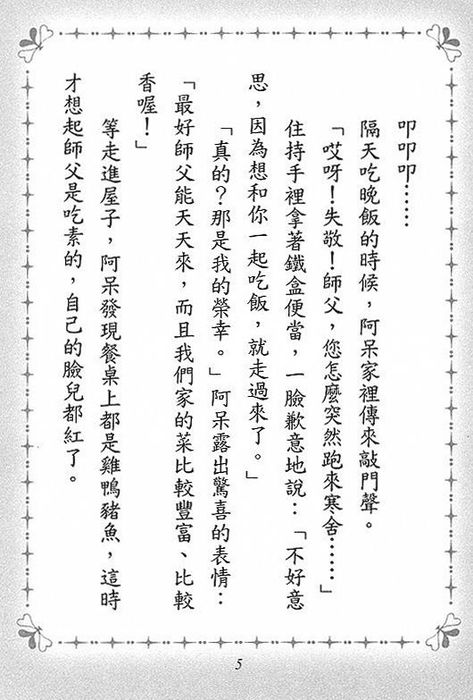 叩叩叩……
隔天吃晚飯的時候，阿呆家裡傳來敲門聲。
「哎呀！失敬！師父，您怎麼突然跑來寒舍……」
住持手裡拿著鐵盒便當，一臉歉意地說：「不好意
思，因為想和你一起吃飯，就走過來了。」
「真的？那是我的榮幸。」阿呆露出驚喜的表情：
「最好師父能天天來，而且我們家的菜比較豐富、比較
香喔！」
等走進屋子，阿呆發現餐桌上都是雞鴨豬魚，這時
才想起師父是吃素的，自己的臉兒都紅了。
5